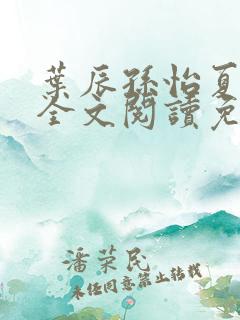 葉辰孫怡夏
全文閱讀免
潘荣民
未经同意禁止转载